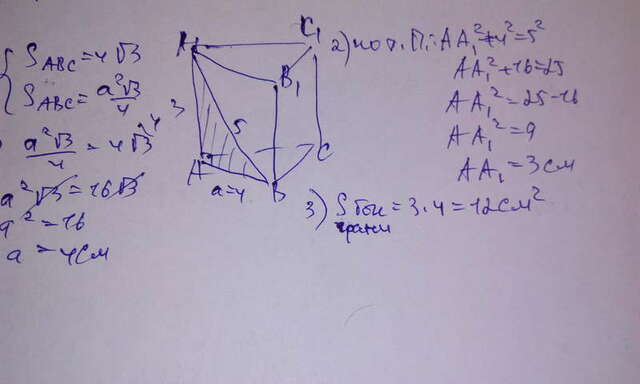 S ABC = 4√3
S ABC = a²√3/4
a²√3/4 = 4√3
a²√3 = 16√3
a² = 16
a = 4см
A₁
C₁
B₁
3
5
A
C
a=4
B
2) по т. П.: AA₁² + 4² = 5²
AA₁² + 16 = 25
AA₁² = 25 - 16
AA₁² = 9
AA₁ = 3 см
3) S бок = 3 · 4 = 12 см²
грани